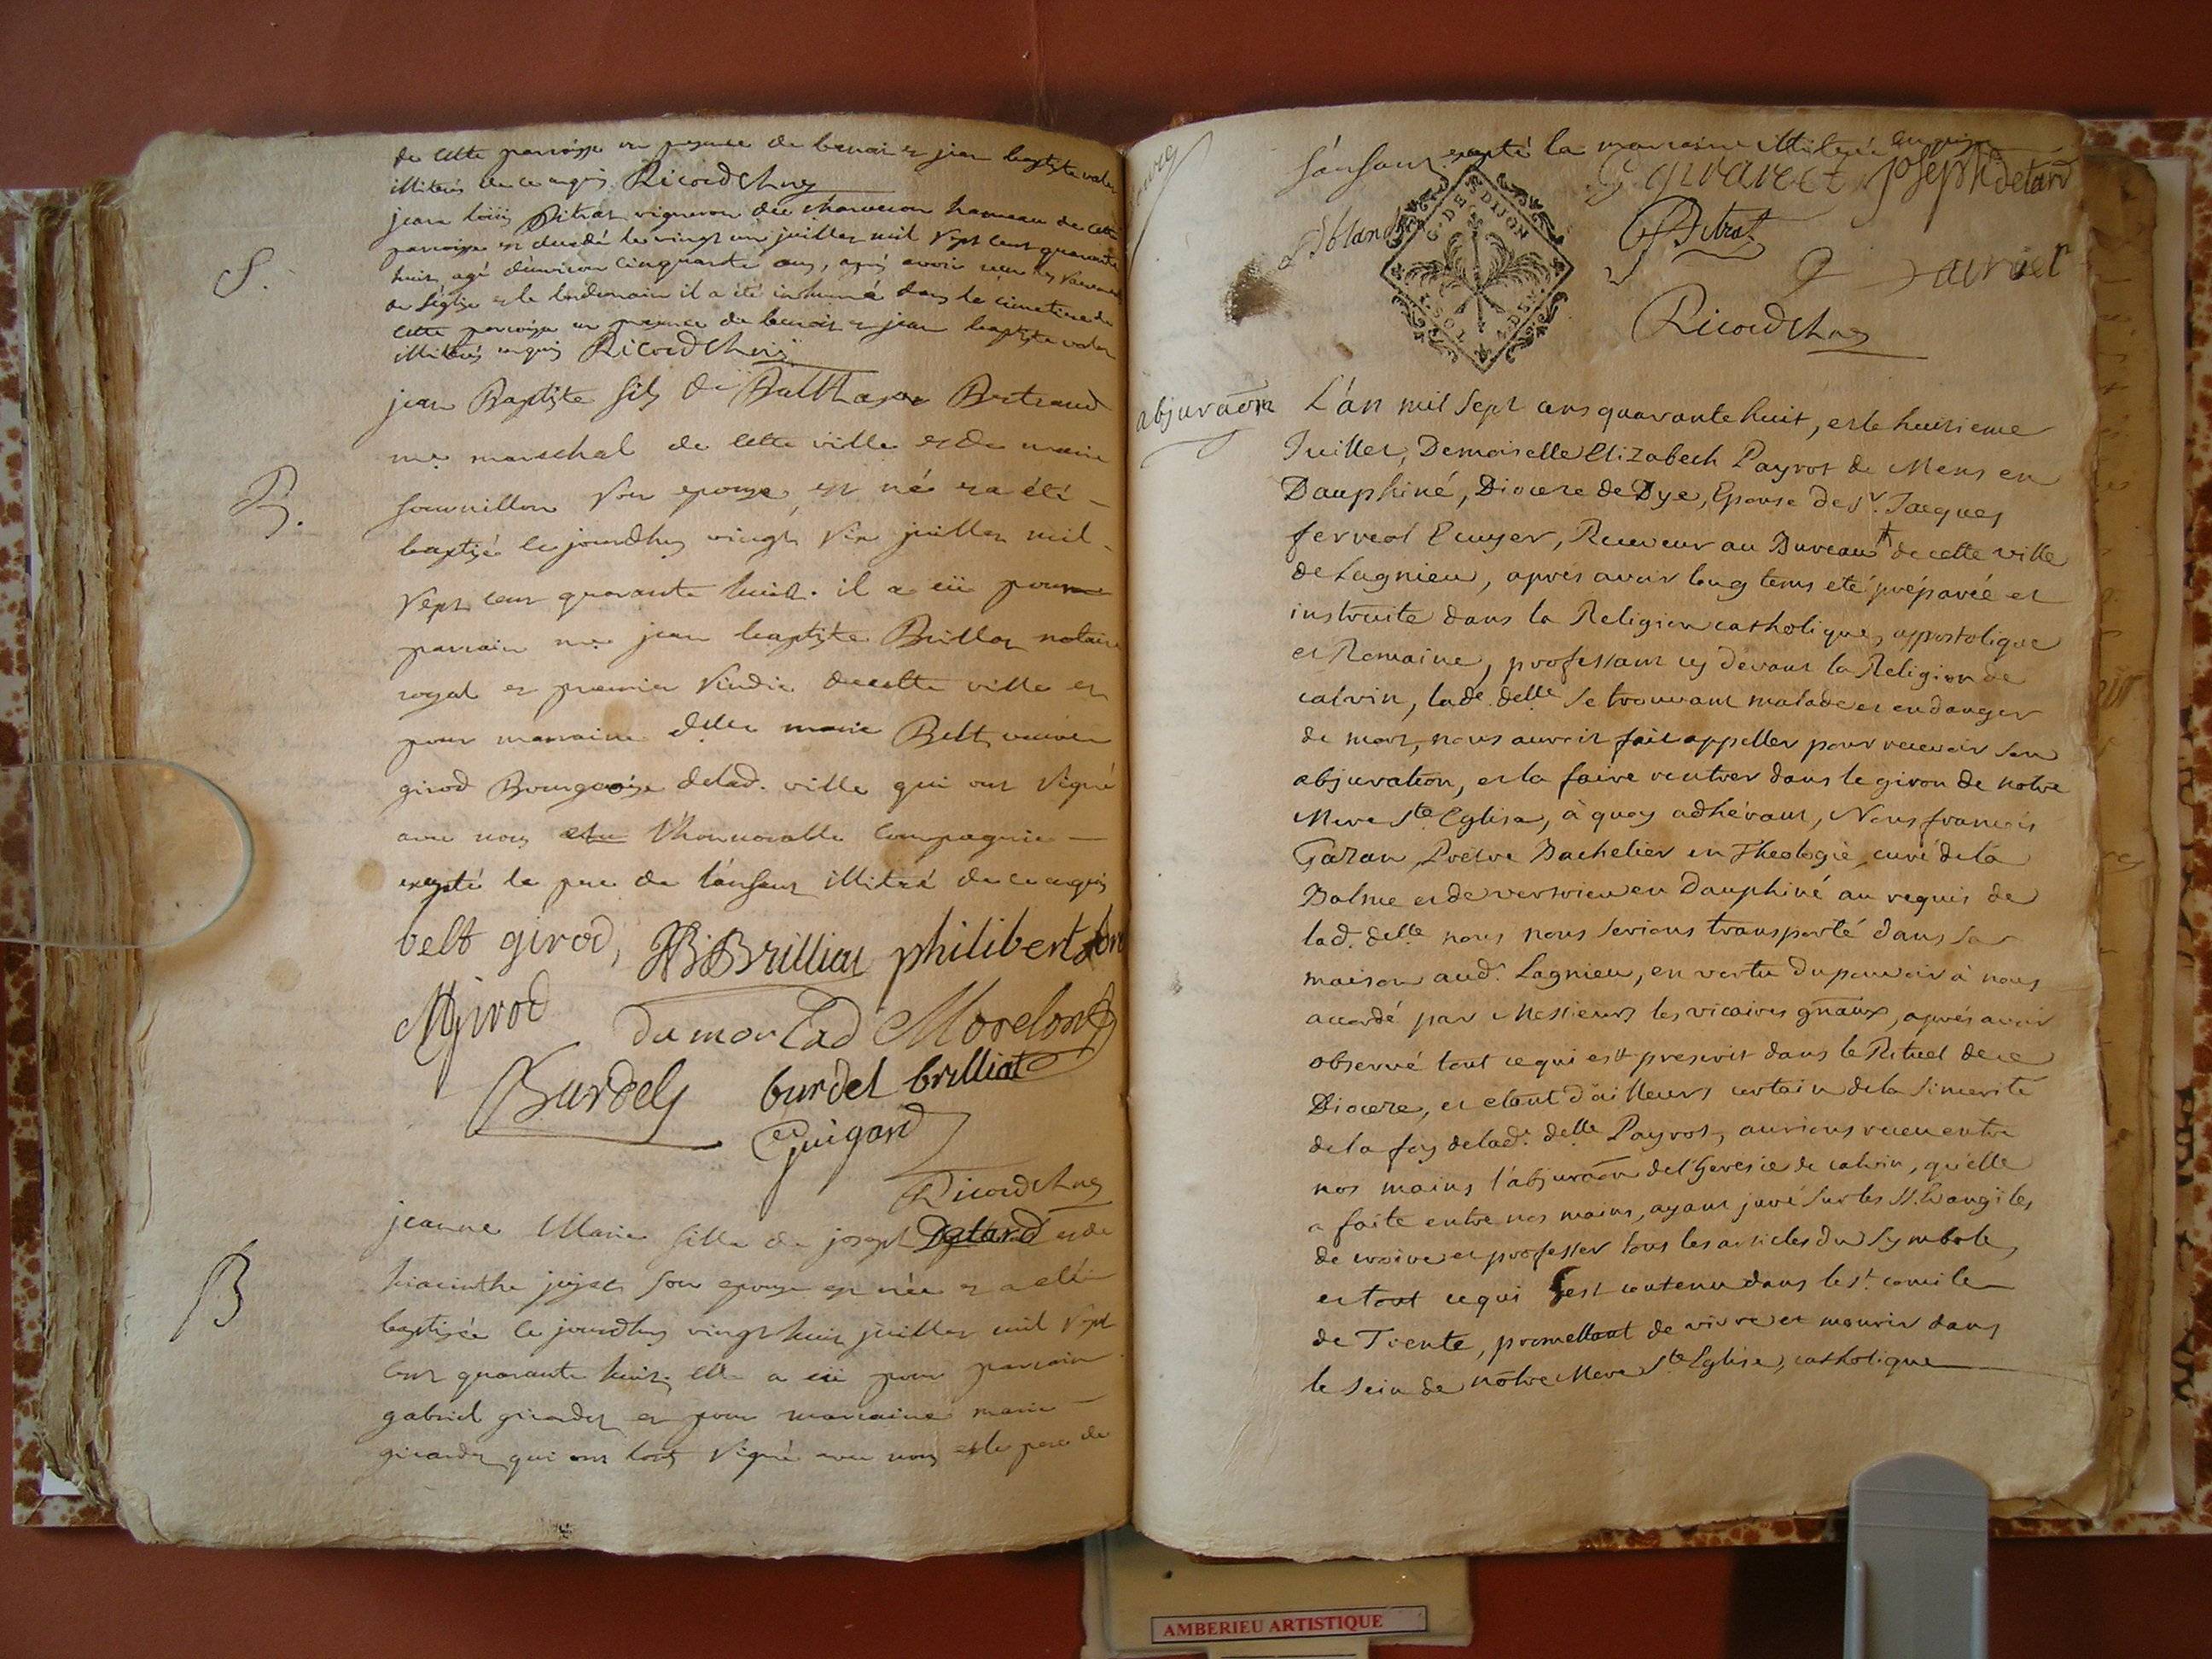 de cette paroisse en presence de benoit et jean baptiste
illiterés de ce enquis Ricoud
jean loüis Ditrat vigneron de charveron hameau de cette
paroisse est decedé le vingt un juillet mil sept cent quarante
huit, agé d'environ cinquante ans, après avoir reçu les sacrements
de l'église et le lendemain il a été inhumé dans le cimetiere de
cette paroisse en presence de benoit et jean baptiste
illiterés enquis Ricoud
S.
jean Baptiste fils de Balthazar Bertraud
me. mareschal de cette ville et de marie
B.
son epouse, est né et a été
baptisé ce jourdhuy vingt six juillet mil
sept cent quarante huit. il a eü pour
parrain me. jean baptiste Brillat notaire
royal et premier sindic de cette ville et
pour marraine delle marie Belt
girod Bourgeoise delad. ville qui ont signé
avec nous et l'honnorable compagnie
excepté le pere de l'enfant illitéré de ce enquis
belt girod, JB Brilliat philibert
Mgirod du mortad Morelon
Burdely burdel brilliat
Guigard
Ricoud
B
jeanne Marie fille de joseph Detard et de
hiacinthe son epouse est née et a été
baptisée ce jourdhuy vingt huit juillet mil sept
cent quarante huit. elle a eü pour parrain
gabriel girardet et pour marraine marie
girardet qui ont tous signé avec nous et le pere de
l'enfant excepté la marraine illiterée enquise
G girardet joseph detard
C. DE DIJON
Ditrat
Ricoud
abjuraõn
L'an mil sept cens quarante huit, et le huitieme
Juillet, Demoiselle Elizabeth Payrot de Mens en
Dauphiné, Diocese de Dye, Epouse de Sr. Jacques
ferreol Ecuyer, Receveur au Bureau + de cette ville
de Lagnieu, aprés avoir long tems eté préparée et
instruite dans la Religion catholique, appostolique
et Romaine, professant cy devant la Religion de
calvin, lade. delle se trouvant malade et en danger
de mort, nous auroit fait appeller pour recevoir son
abjuration, et la faire rentrer dans le giron de notre
Mere Ste Eglise, à quoy adhérant, Nous francois
Gazan, Prêtre Bachelier en Theologie, curé dela
Balme et de versieu en Dauphiné au requis de
lad. delle nous nous serions transporté dans sa
maison aud. Lagnieu, en vertu du pouvoir à nous
accordé par Messieurs les vicaires gñaux, aprés avoir
observé tout ce qui est prescrit dans le Rituel de ce
Diocese, et etant d'ailleurs certain dela sincerité
dela foy delade. delle Payrot, aurions receu entre
nos mains l'abjuraõn del'heresie de calvin, qu'elle
a faite entre nos mains, ayant juré sur les Sts. Evangiles
de croire et professer tous les articles du Symbole,
et tout ce qui est contenu dans le St. concile
de Trente, promettant de vivre et mourir dans
le sein de nôtre Mere Ste Eglise, catholique
AMBERIEU ARTISTIQUE